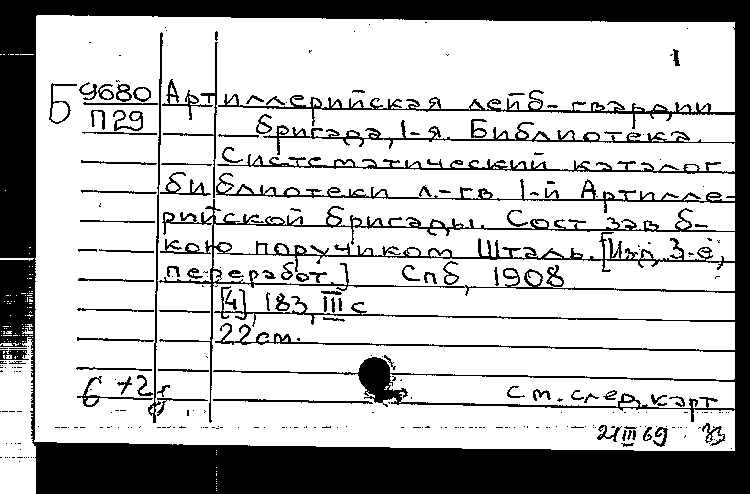 1
Б 9680 Артиллерийская лейб-гвардии
П29 бригада, 1-я. Библиотека.
Систематический каталог
библиотеки л.-гв. 1-й Артилле-
рийской бригады. Сост. зав б-
кою поручиком Шталь. [Изд. 3-е,
переработ.] Спб, 1908
[4], 183, III с
22 см.
6 +2
см. след. карт
21 III 69